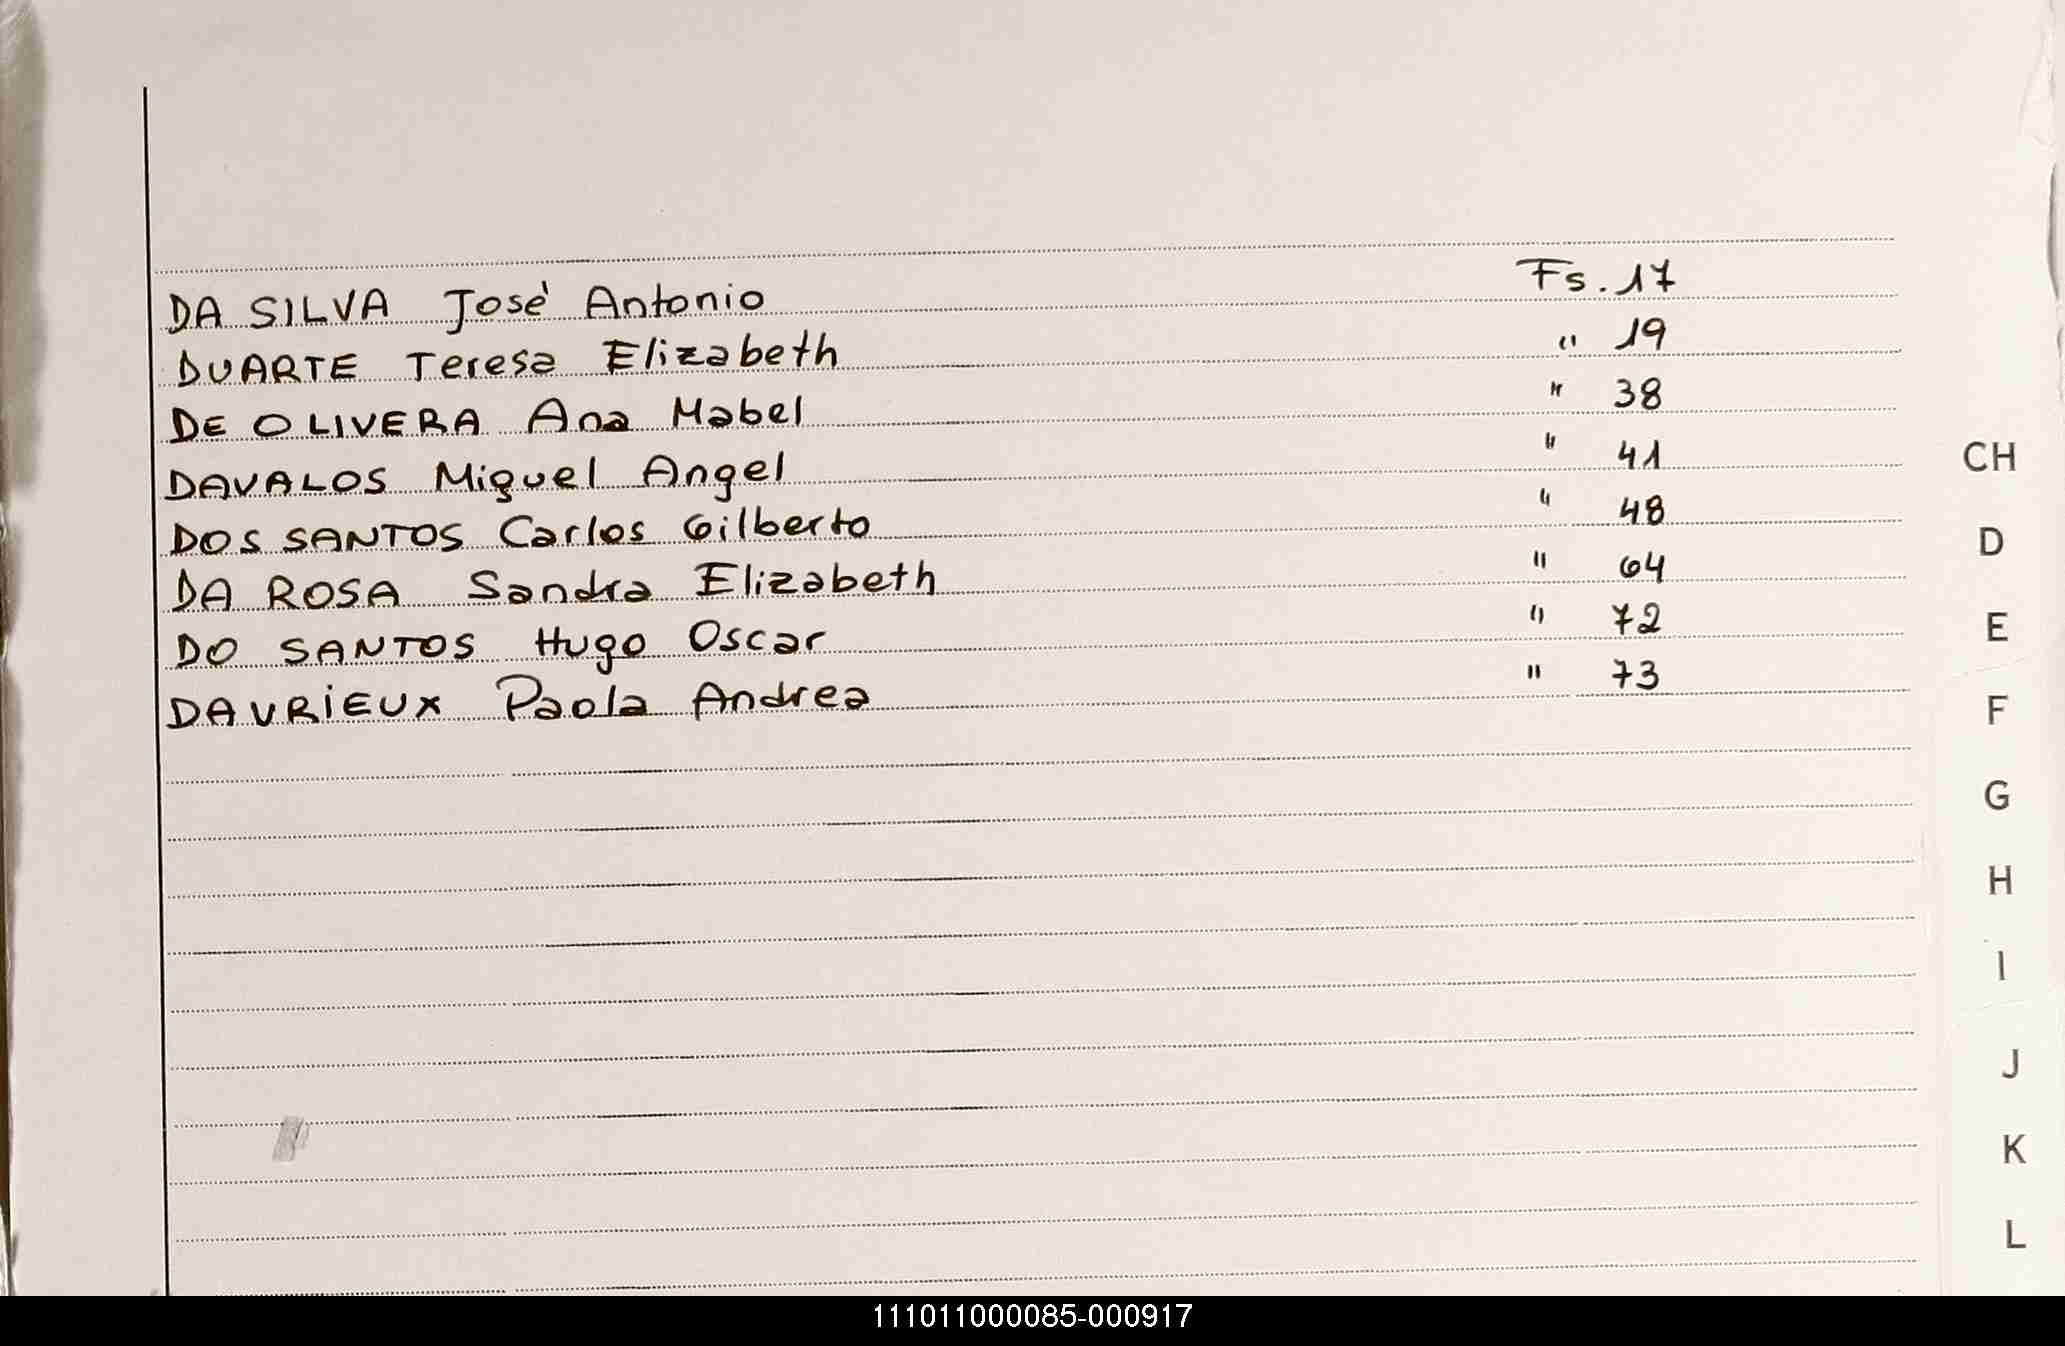 DA SILVA José Antonio Fs. 17
DUARTE Teresa Elizabeth " 19
DE OLIVERA Ana Mabel " 38
DAVALOS Miguel Angel " 41
DOS SANTOS Carlos Gilberto " 48
DA ROSA Sandra Elizabeth " 64
DO SANTOS Hugo Oscar " 72
DAVRIEUX Paola Andrea " 73
CH
D
E
F
G
H
I
J
K
L
111011000085-000917